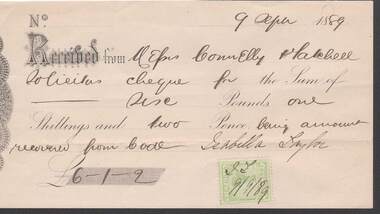 No. 9 Apr 1889
Received from Messrs Connelly & Tatchell
Solicitors cheque for the Sum of
Six Pounds one
Shillings and two Pence being amount
recovered from Code Isabella Taylor
£6-1-2
I.T.
9/4/89